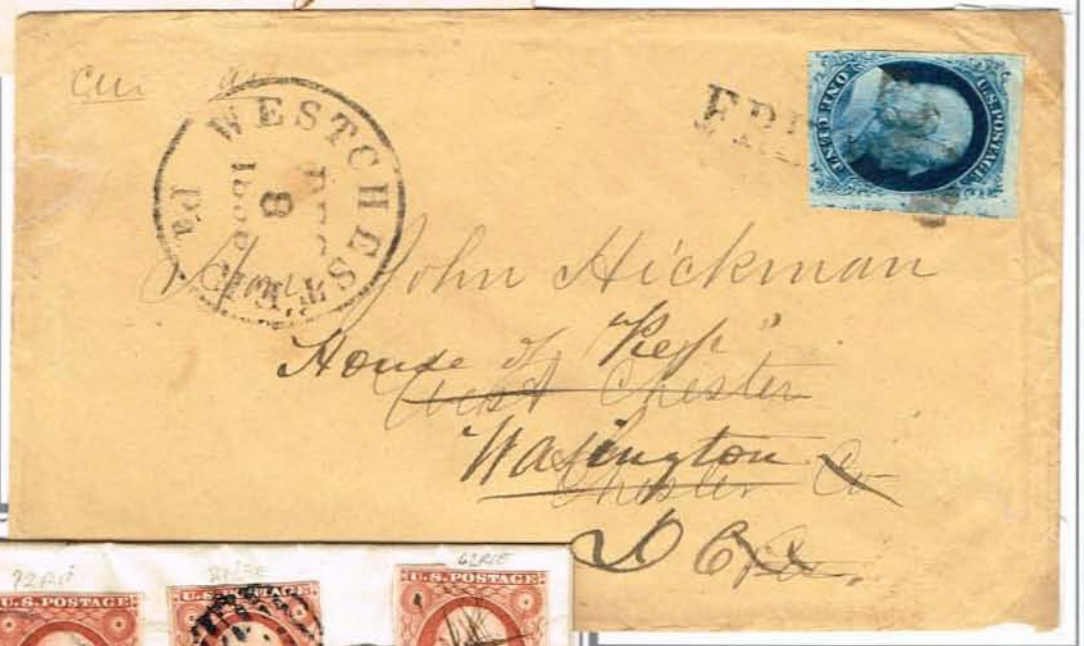 WESTCHESTER
Pa.
DEC
8
FREE
ONE CENT
U.S. POSTAGE
Hon. John Hickman
House of "Rep"
West Chester
Washington
Chester Co
D C Pa.
U.S. POSTAGE
U.S. POSTAGE
U.S. POSTAGE